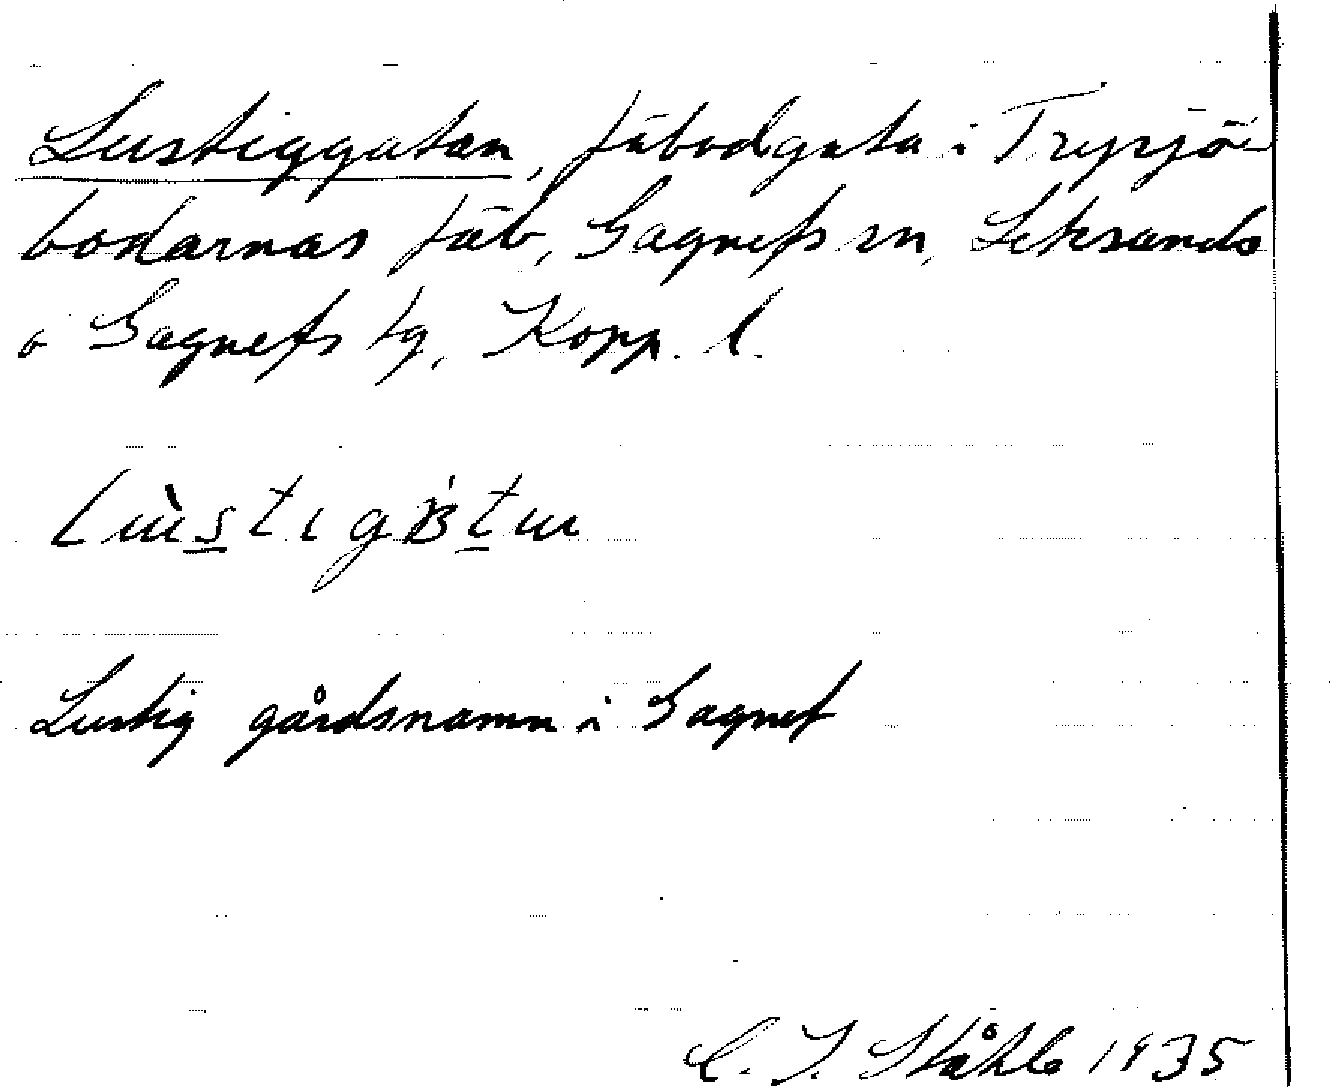 Lustiggatan, fäbodgata i Trysjö-
bodarnas fäb, Gagnefs sn, Leksands
o Gagnefs tg, Kopp. l.
Lustig gårdsnamn i Gagnef
C. I. Ståhle 1935